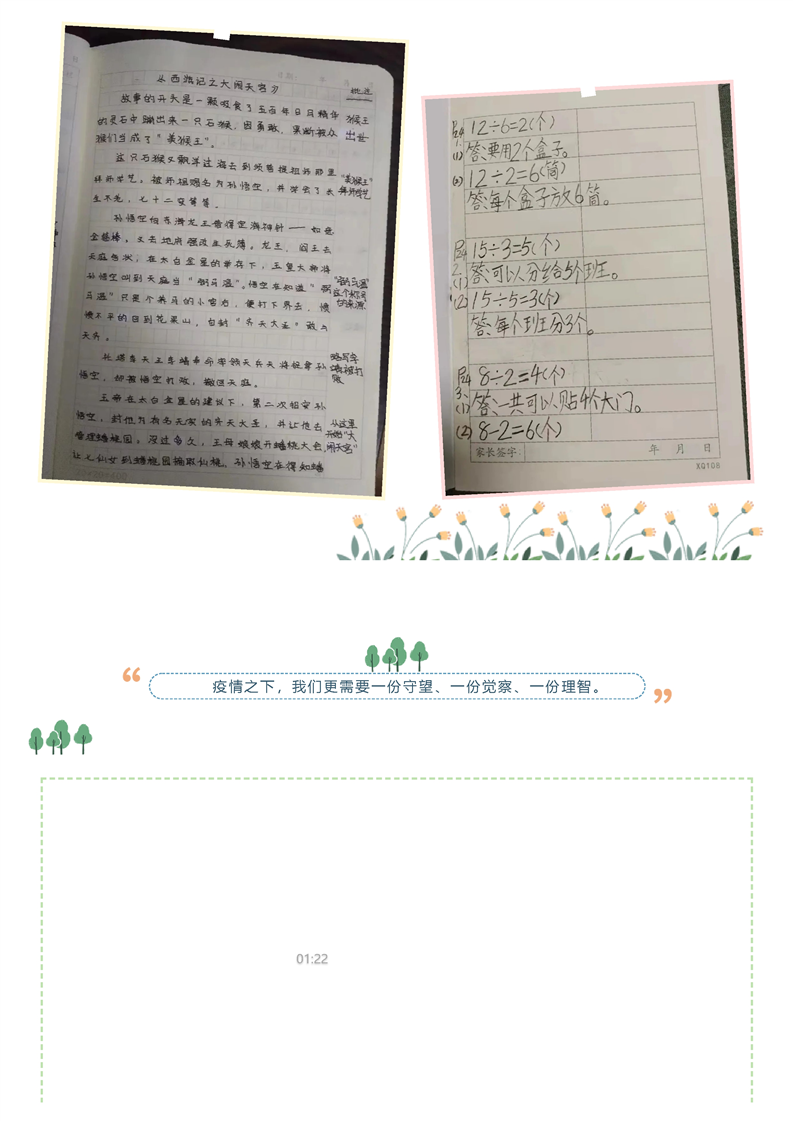 《西游记之大闹天宫》
批注
故事的开头是一颗吸食了五百年日月精华
的灵石中蹦出来一只石猴,因勇敢、果断被众
猴们当成了"美猴王"。
猴王
出世
这只石猴又飘洋过海去到须菩提祖师那里
拜师学艺,被师祖赐名为孙悟空,并学会了长
生不老,七十二变等等。
"美猴王"
拜师学艺
孙悟空但东海龙王借得定海神针——如意
金箍棒,又去地府强改生死簿。龙王、阎王去
天庭告状,在太白金星的奉存下,玉皇大帝将
孙悟空叫到天庭当"弼马温"。悟空在知道"弼
马温"只是个养马的小官后,便打下界去,愤
愤不平的回到花果山,自封"齐天大圣"敢与
天齐。
"弼马温"
这个称号
的来源
托塔李天王李靖奉命率领天兵天将捉拿孙
悟空,却被悟空打败,搬回天庭。
玉帝在太白金星的建议下,第二次招安孙
悟空,封他为有名无实的齐天大圣,并让他去
管理蟠桃园。没过多久,王母娘娘开蟠桃大会,
让七仙女到蟠桃园摘取仙桃,孙悟空在得知蟠
从这里
开始"大
闹天宫"
12÷6=2(个)
(1)答:要用2个盒子。
(2)12÷2=6(筒)
答:每个盒子放6筒。
15÷3=5(个)
2.
(1)答:可以分给5个班。
(2)15÷5=3(个)
答:每个班分3个。
8÷2=4(个)
3.
(1)答:一共可以贴4个大门。
(2)8-2=6(个)
家长签字: 年 月 日
XQ108
“疫情之下,我们更需要一份守望、一份觉察、一份理智。”
01:22